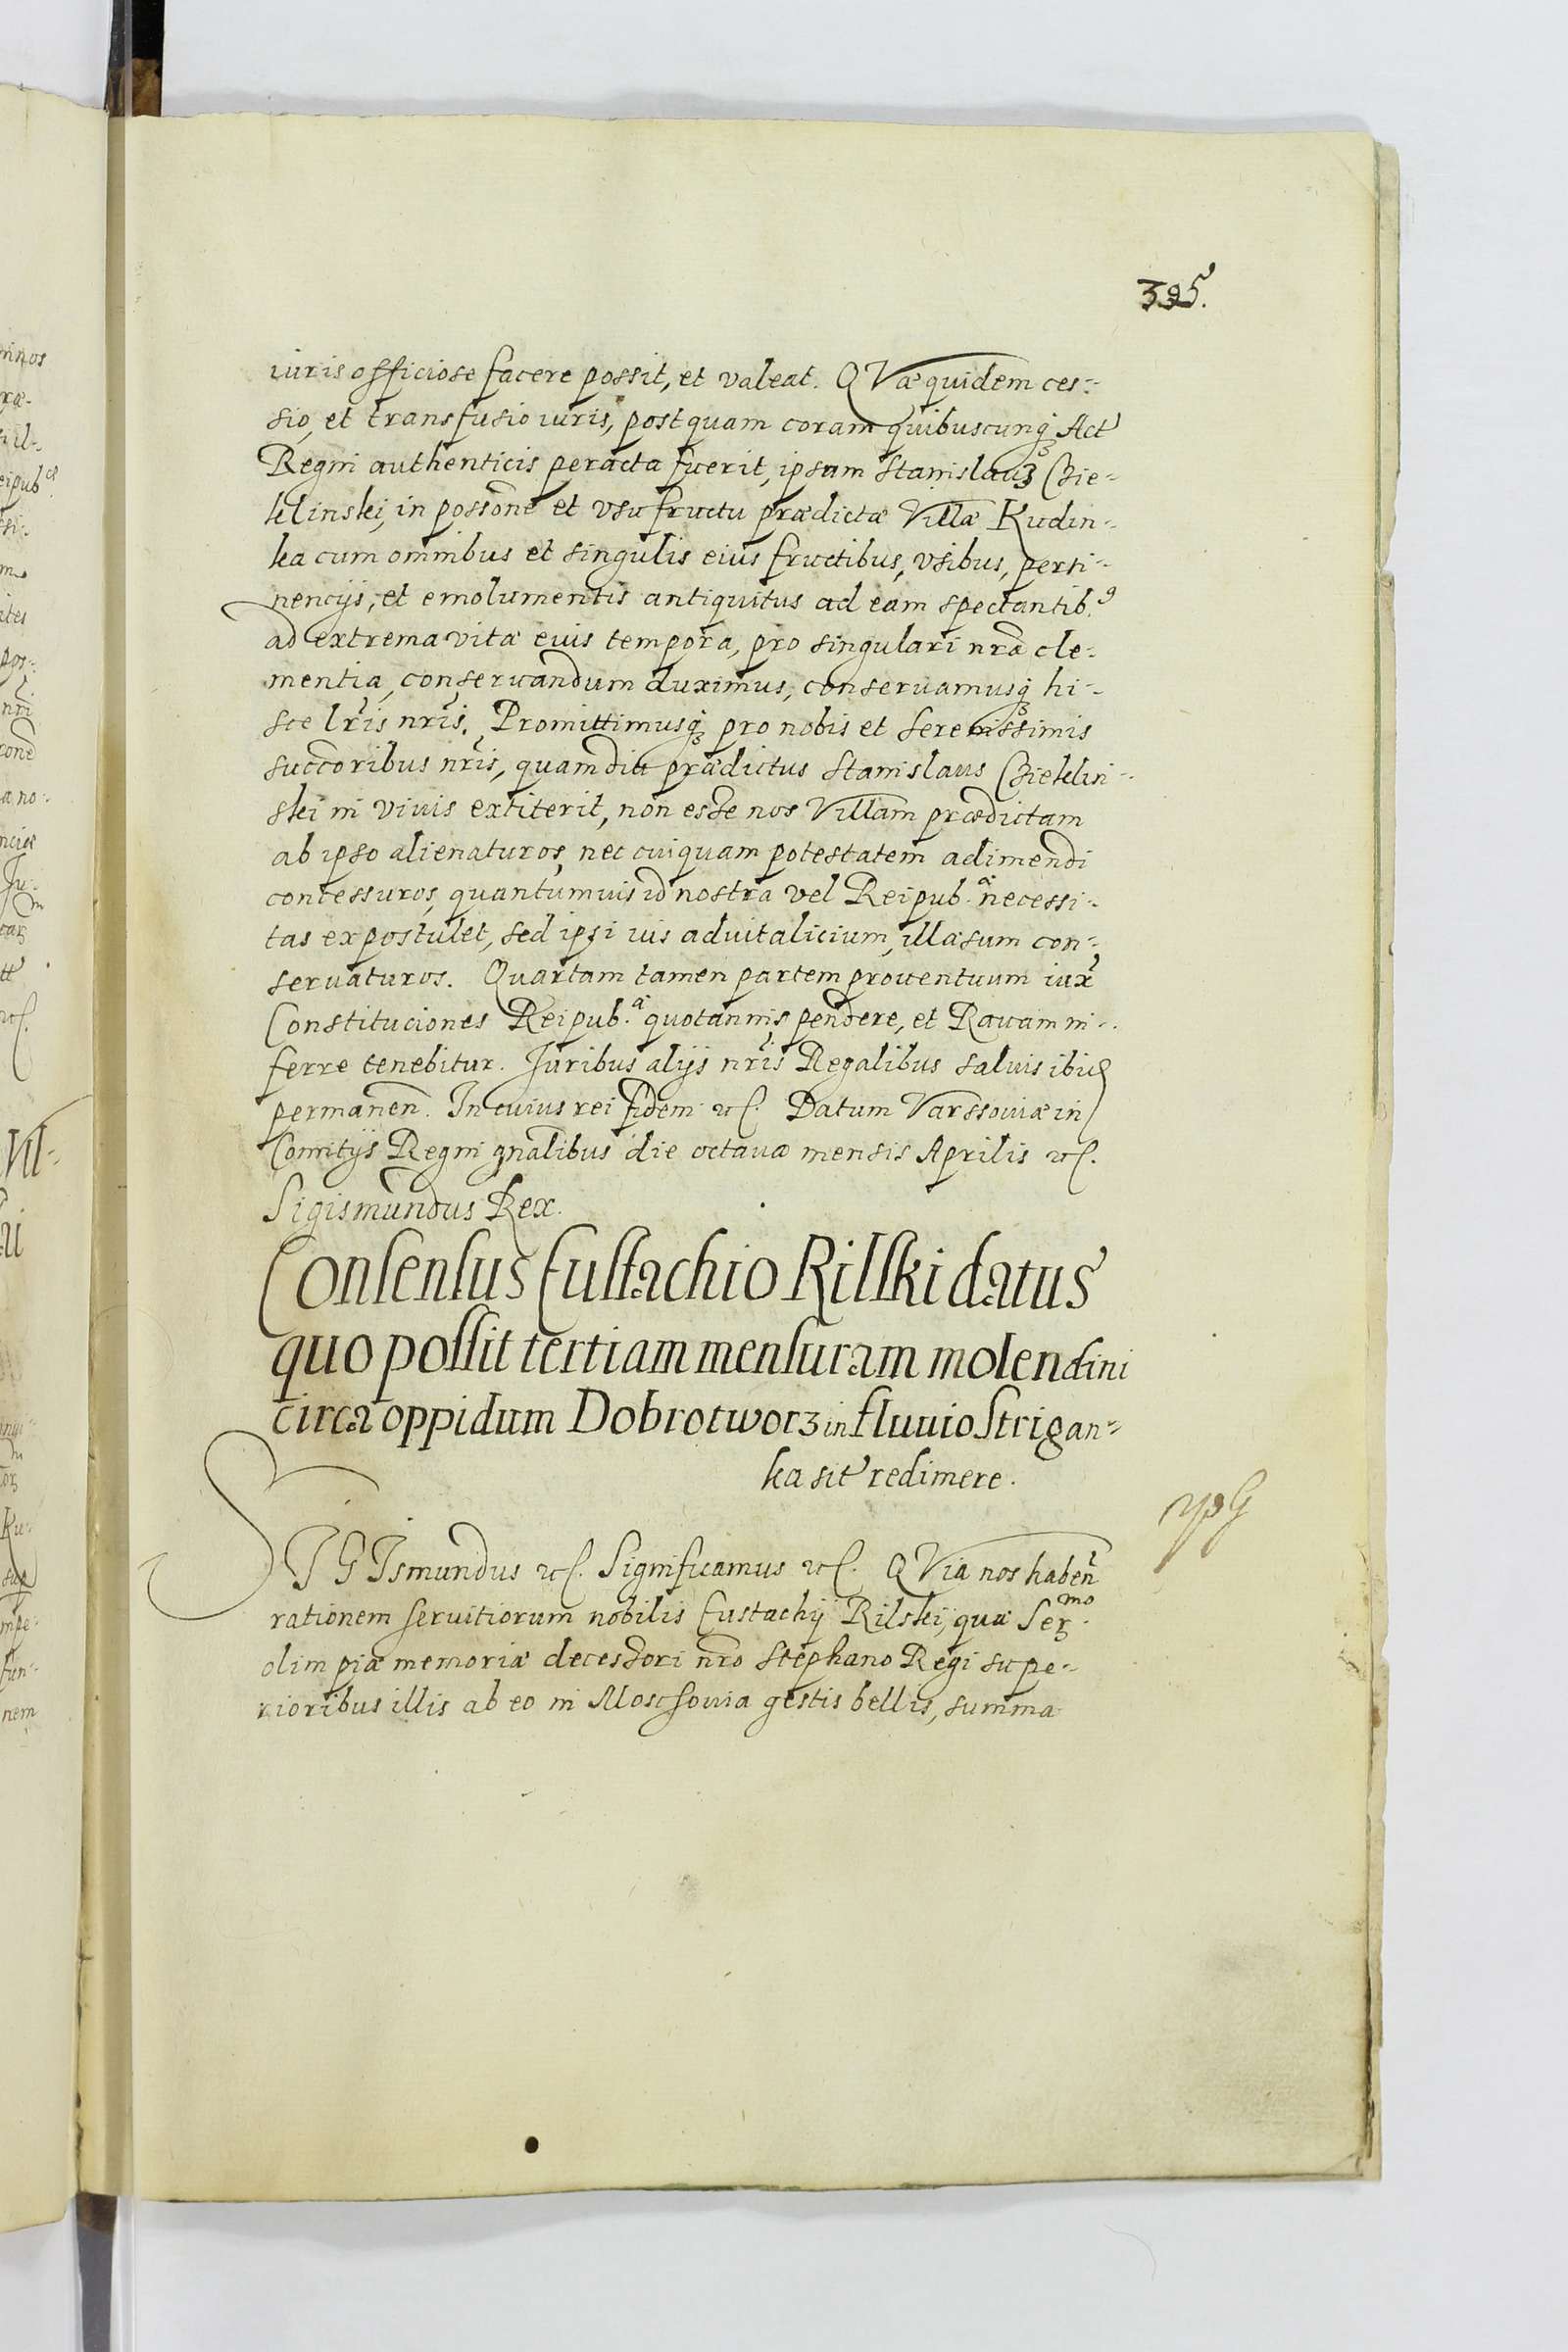 395.
iuris officiose facere possit, et valeat. QVæ quidem ces-
sio, et transfusio iuris, postquam coram quibuscunqꝫ Act
Regni authenticis peracta fuerit, ipsum Stanislauꝫ Bie-
klinski, in possōne et vsufructu prædictæ Villæ Kudin-
ka cum omnibus et singulis eius fructibus, vsibus, perti-
nencijs, et emolumentis antiquitus ad eam spectantib.⁹
ad extrema vitæ eius tempora, pro singulari nrā cle-
mentia, conseruandum duximus, conseruamusqꝫ hi-
sce lrīs nrīs. Promittimusqꝫ pro nobis et Serenissimis
succoribus nrīs, quamdiu prædictus Stanislaus Bieklin-
ski in viuis extiterit, non esse nos Villam prædictam
ab ipso alienaturos, nec cuiquam potestatem adimendi
concessuros, quantumuis id nostra vel Reipub.ᵃ necessi-
tas expostulet, sed ipsi ius aduitalicium, illæsum con-
seruaturos. Quartam tamen partem prouentuum iux
Constituciones Reipub.ᵃ quotannis pendere, et Rauam in-
ferre tenebitur. Juribus alijs nrīs Regalibus saluis ibid
permanen. In cuius rei fidem etc. Datum Varssouiæ in
Comitijs Regni gnalibus die octaua mensis Aprilis etc.
Sigismundus Rex.
Consensus Eustachio Rilski datus
quo possit tertiam mensuram molendini
circa oppidum Dobrotworz in fluuio Strigan-
ka sit redimere.
SIGIsmundus etc. Significamus etc. QVia nos haben
rationem seruitiorum nobilis Eustachij Rilski, quæ Ser.ᵐᵒ
olim piæ memoriæ decessori nrō Stephano Regi supe-
rioribus illis ab eo in Moschouia gestis bellis, summa